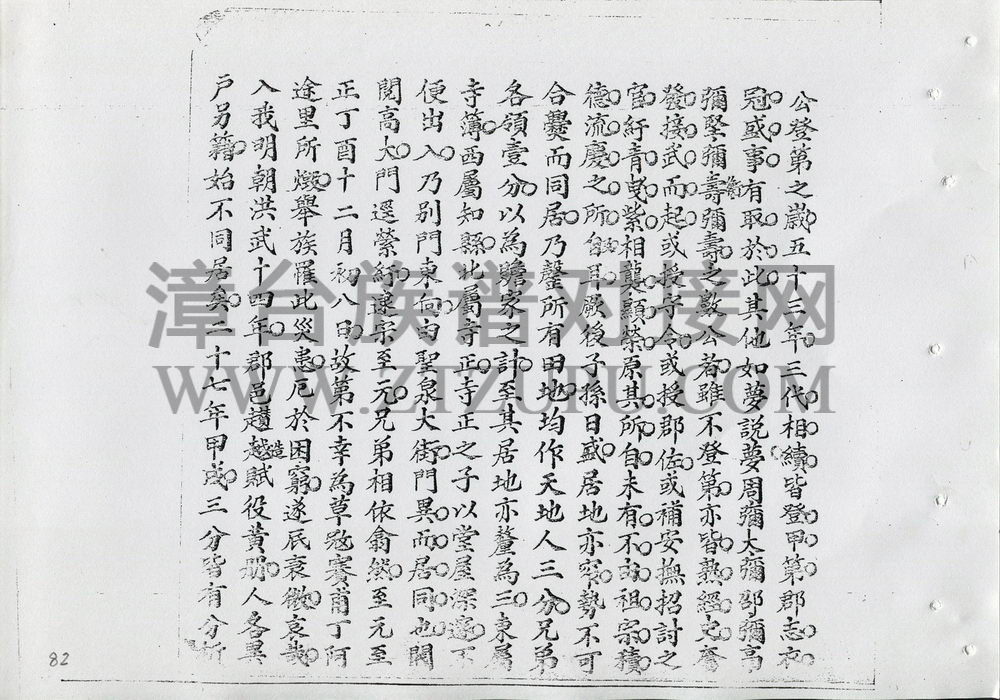 公登第之歲五十三年三代相續皆登甲第郡志衣
冠盛事有取於此其他如夢說夢周彌大彌邵彌高
彌堅彌壽彌壽之數公者雖不登第亦皆熟經史奮
發接武而起或授守令或授郡佐或補安撫招討之
官紆青曳紫相襲顯榮原其所自未有不由祖宗積
德流慶之所自耳厥後子孫日盛居地亦窄勢不可
合爨而同居乃罄所有田地均作天地人三分兄弟
各領壹分以為贍家之計至其居地亦釐為三東屬
寺簿西屬知縣北屬寺正寺正之子以堂屋深邃不
便出入乃別門東向白聖泉大街門異而居同也閥
閱高大門逕縈紆逮宗至元兄弟相依翕然至元至
正丁酉十二月初八日故第不幸為草寇賽甫丁阿
途里所燬舉族罹此災患厄於困窮遂底衰微哀哉
入我明朝洪武十四年郡邑趲造賦役黃册人各異
戶另籍始不同居矣二十七年甲戌三分皆有分析
漳台族谱对接网
WWW.ZTZUPU.COM
82